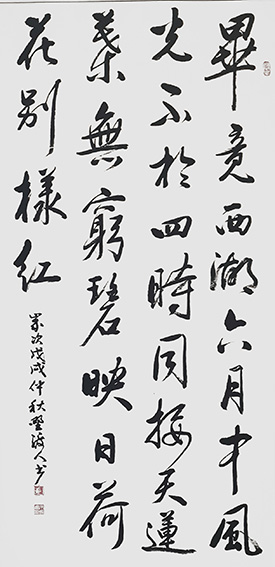 畢竟西湖六月中風
光不於四時同接天蓮
葉無窮碧映日荷
花別樣紅
歲次戊戌仲秋人书